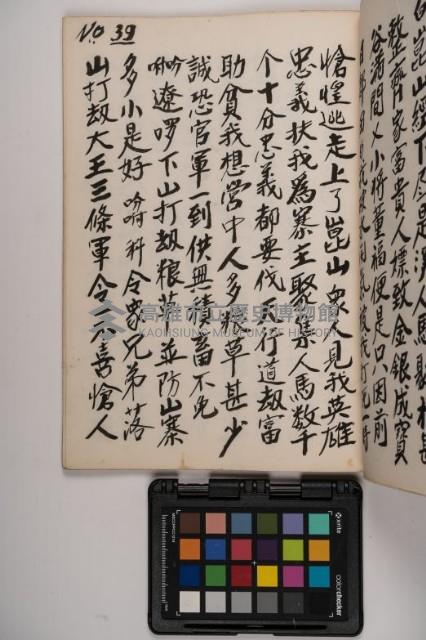 No. 39
愴惶逃走上了崑山衆人見我英雄
忠義扶我爲寨主聚集人馬数千
个十分忠義都要伐天行道刼富
助貧我想营中人多糧草甚少
誠恐官軍一到供無積畜不免
吩嘹啰下山打刼粮草並防山寨
多小是好 吩咐科 令衆兄弟落
山打刼大王三條軍令不喜愴人
整齊家富貴人標致金銀成寶
谷滿間乂小將董福便是只因前
高雄市立歷史博物館
KAOHSIUNG MUSEUM OF HISTORY
x-rite
colorchecker